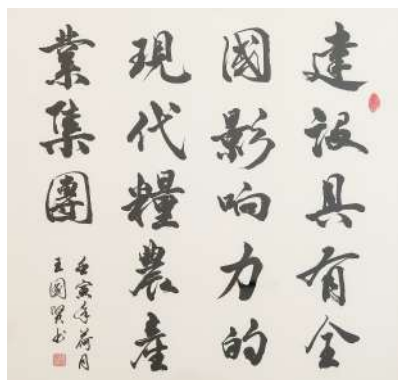 建設具有全
國影响力的
現代糧農產
業集團
壬寅年荷月
王國賢书